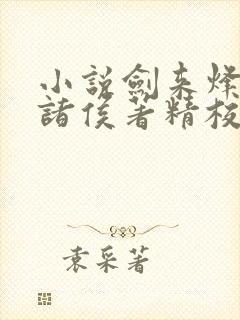 小説劍来烽
諸侯著精校
袁采著